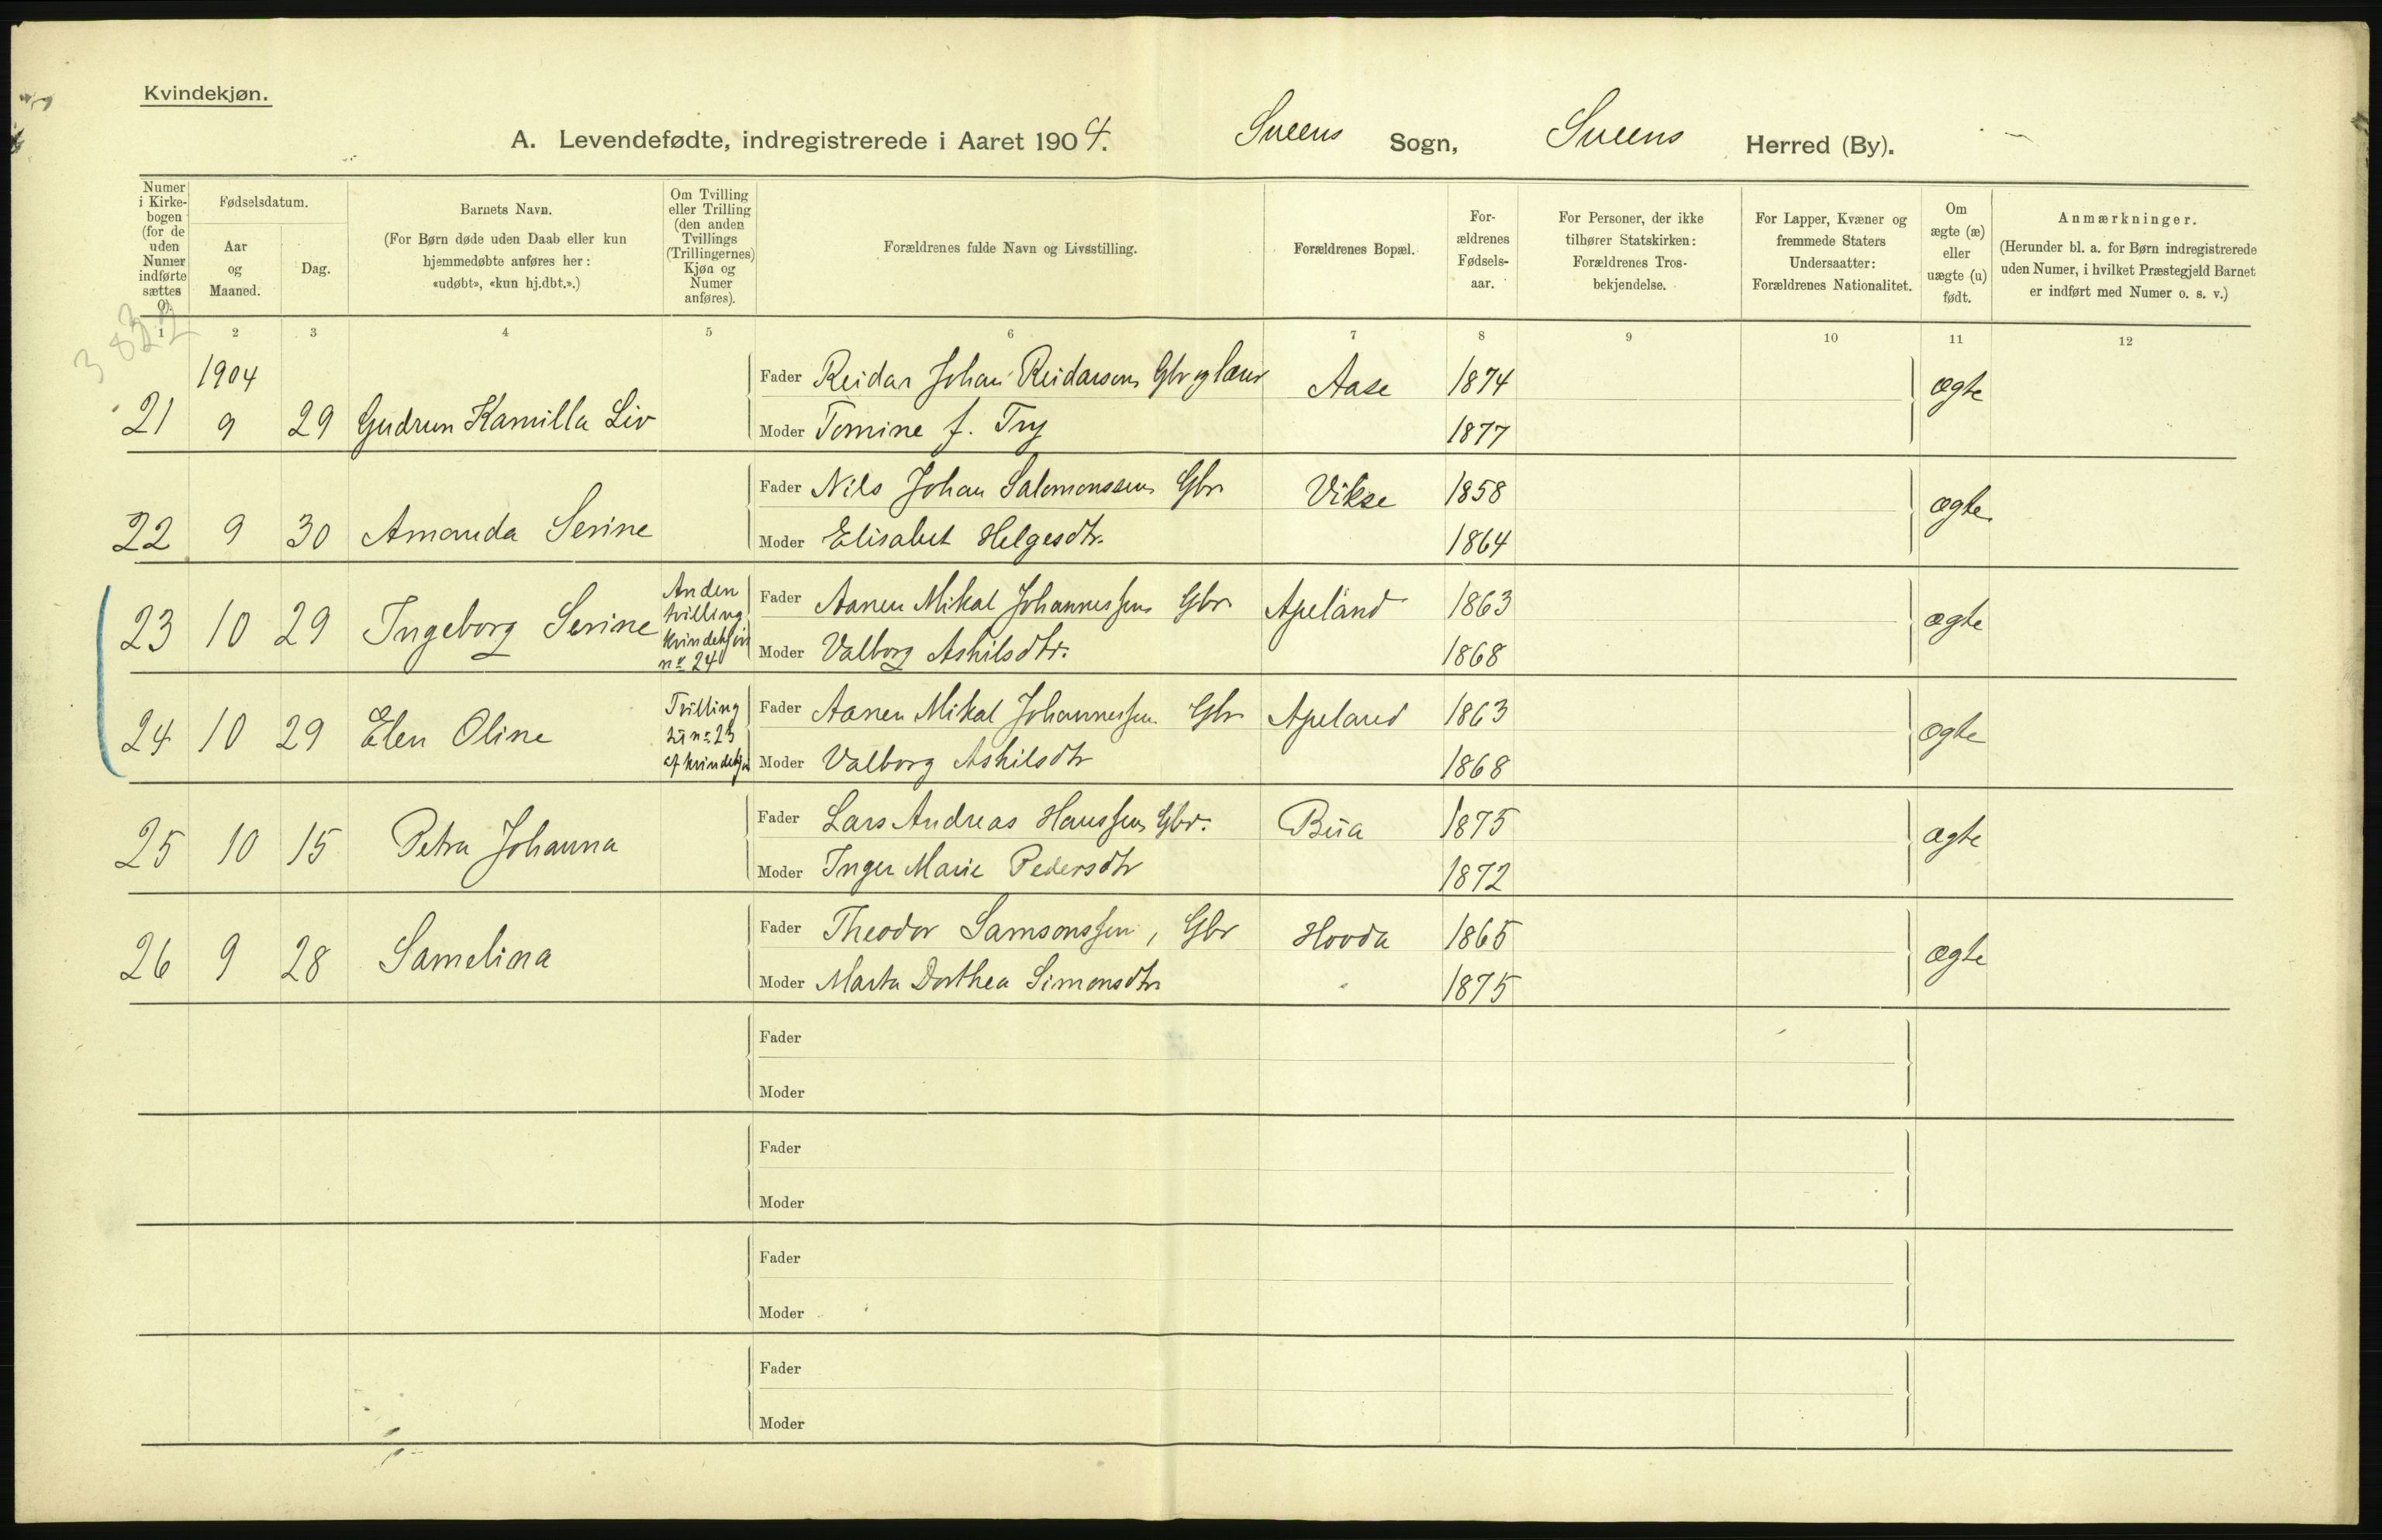 Kvindekjøn.
A. Levendefødte, indregistrerede i Aaret 1904. Sveens Sogn, Sveens Herred (By).
Numer i Kirkebogen (for de uden Numer indførte sættes 0).
Fødselsdatum.
Aar og Maaned.
Dag.
Barnets Navn.
(For Børn døde uden Daab eller kun hjemmedøbte anføres her: «udøbt», «kun hj.dbt.».)
Om Tvilling eller Trilling (den anden Tvillings (Trillingernes) Kjøn og Numer anføres).
Forældrenes fulde Navn og Livsstilling.
Forældrenes Bopæl.
Forældrenes Fødselsaar.
For Personer, der ikke tilhører Statskirken: Forældrenes Trosbekjendelse.
For Lapper, Kvæner og fremmede Staters Undersaatter: Forældrenes Nationalitet.
Om ægte (æ) eller uægte (u) født.
Anmærkninger.
(Herunder bl. a. for Børn indregistrerede uden Numer, i hvilket Præstegjeld Barnet er indført med Numer o. s. v.)
1 2 3 4 5 6 7 8 9 10 11 12
1904
Fader Reidar Johan Reidarson Gbr og Aase 1874 ægte
21 9 29 Gudrun Kamilla Liv
Moder Tomine f. Try 1877
Fader Nils Johan Salomonssen Gbr Vikse 1858 ægte
22 9 30 Amanda Serine
Moder Elisabet Helgesdtr. 1864
23 10 29 Ingeborg Serine
Anden
tvilling
kvindekjøn
no 24
Fader Aanen Mikal Johannessen Gbr Apeland 1863 ægte
Moder Valborg Askilsdtr. 1868
24 10 29 Elen Oline
Tvilling
til no 23
af kvindekjøn
Fader Aanen Mikal Johannessen Gbr Apeland 1863 ægte
Moder Valborg Askilsdtr 1868
25 10 15 Petra Johanna
Fader Lars Andreas Hanssen Gbr. Bua 1875 ægte
Moder Inger Marie Pedersdtr 1872
26 9 28 Samelina
Fader Theodor Samsonssen, Gbr Hovda 1865 ægte
Moder Marta Dorthea Simonsdtr 1875
Fader
Moder
Fader
Moder
Fader
Moder
Fader
Moder